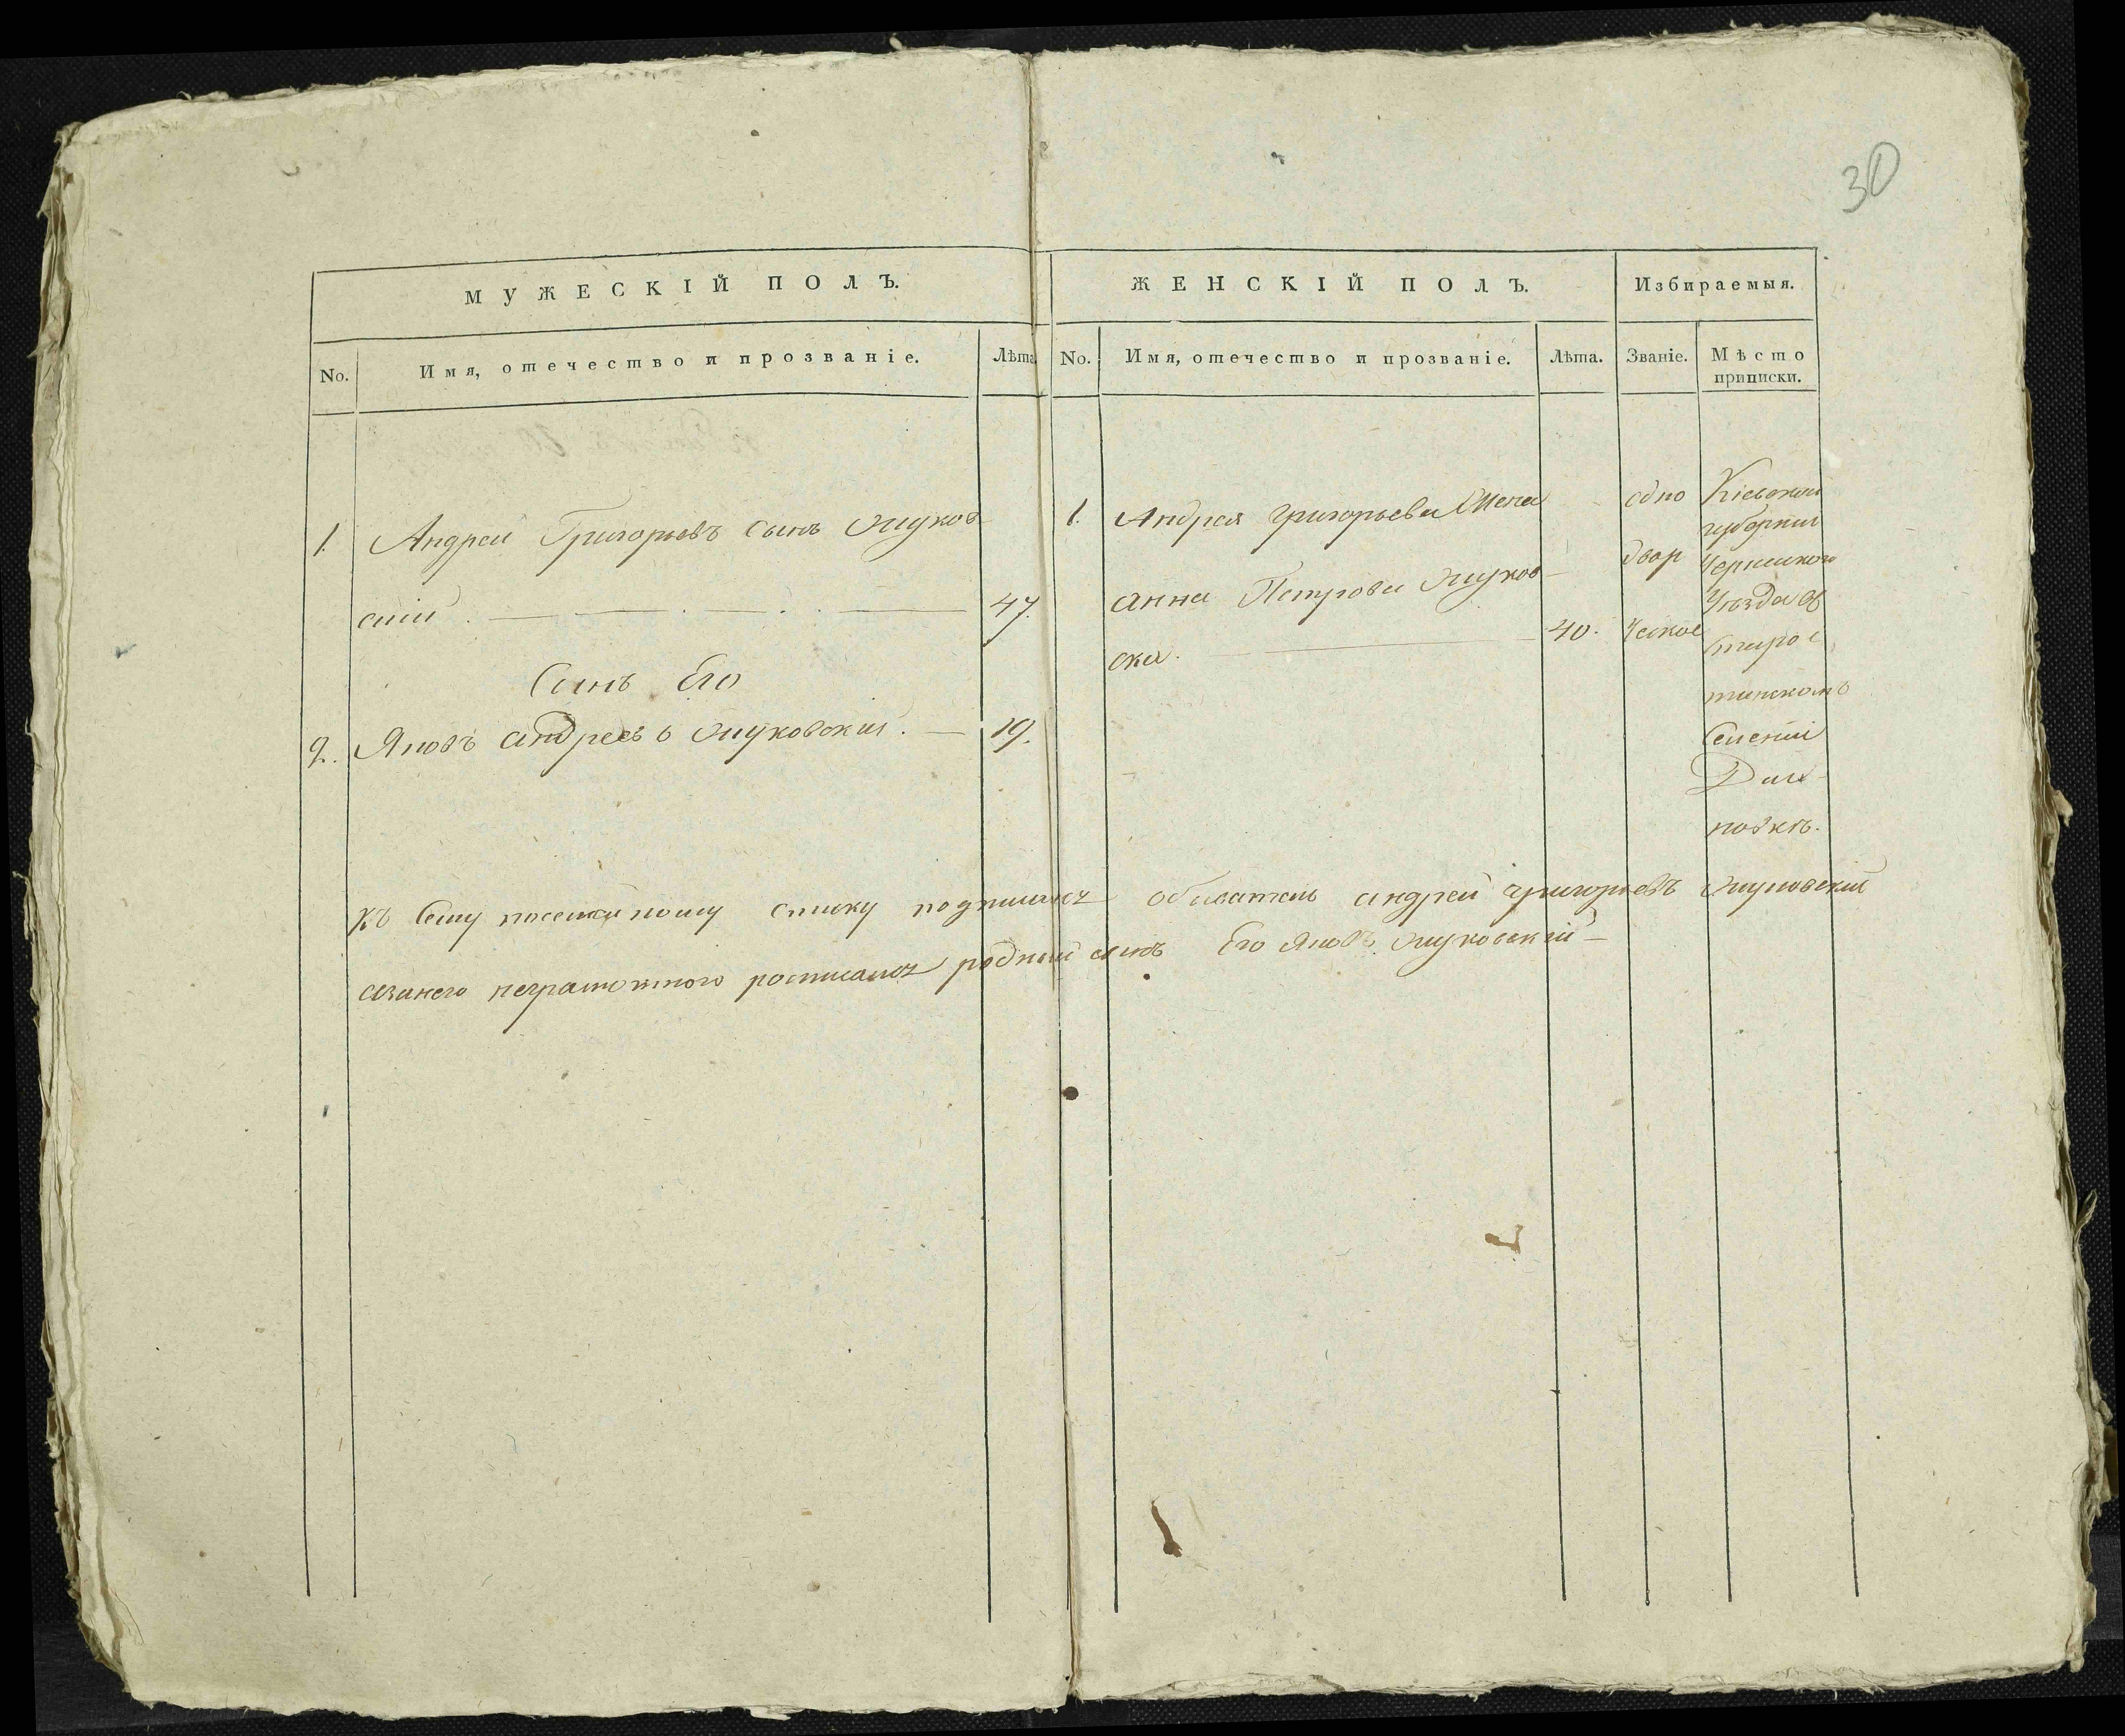 30
МУЖЕСКІЙ ПОЛЪ.
No. Имя, отечество и прозваніе. Лѣта
1. Андрей Григорьевъ сынъ Жуков
скій 47.
Сынъ Его
2. Яковъ андреевъ Жуковскій. 19.
ЖЕНСКІЙ ПОЛЪ. Избираемыя.
No. Имя, отечество и прозваніе. Лѣта. Званіе. Мѣсто
приписки.
1. Андрея григорьева Жена
анна Петрова Жуков
ска. 40.
одно
двор
ческое
Кіевской
губерніи
Уезда
селеніи
къ сему посемейному списку подписался обыватель андрей григорьевъ Жуковский
азанего неграмотного росписался родный сынъ Его Яковъ Жуковскій